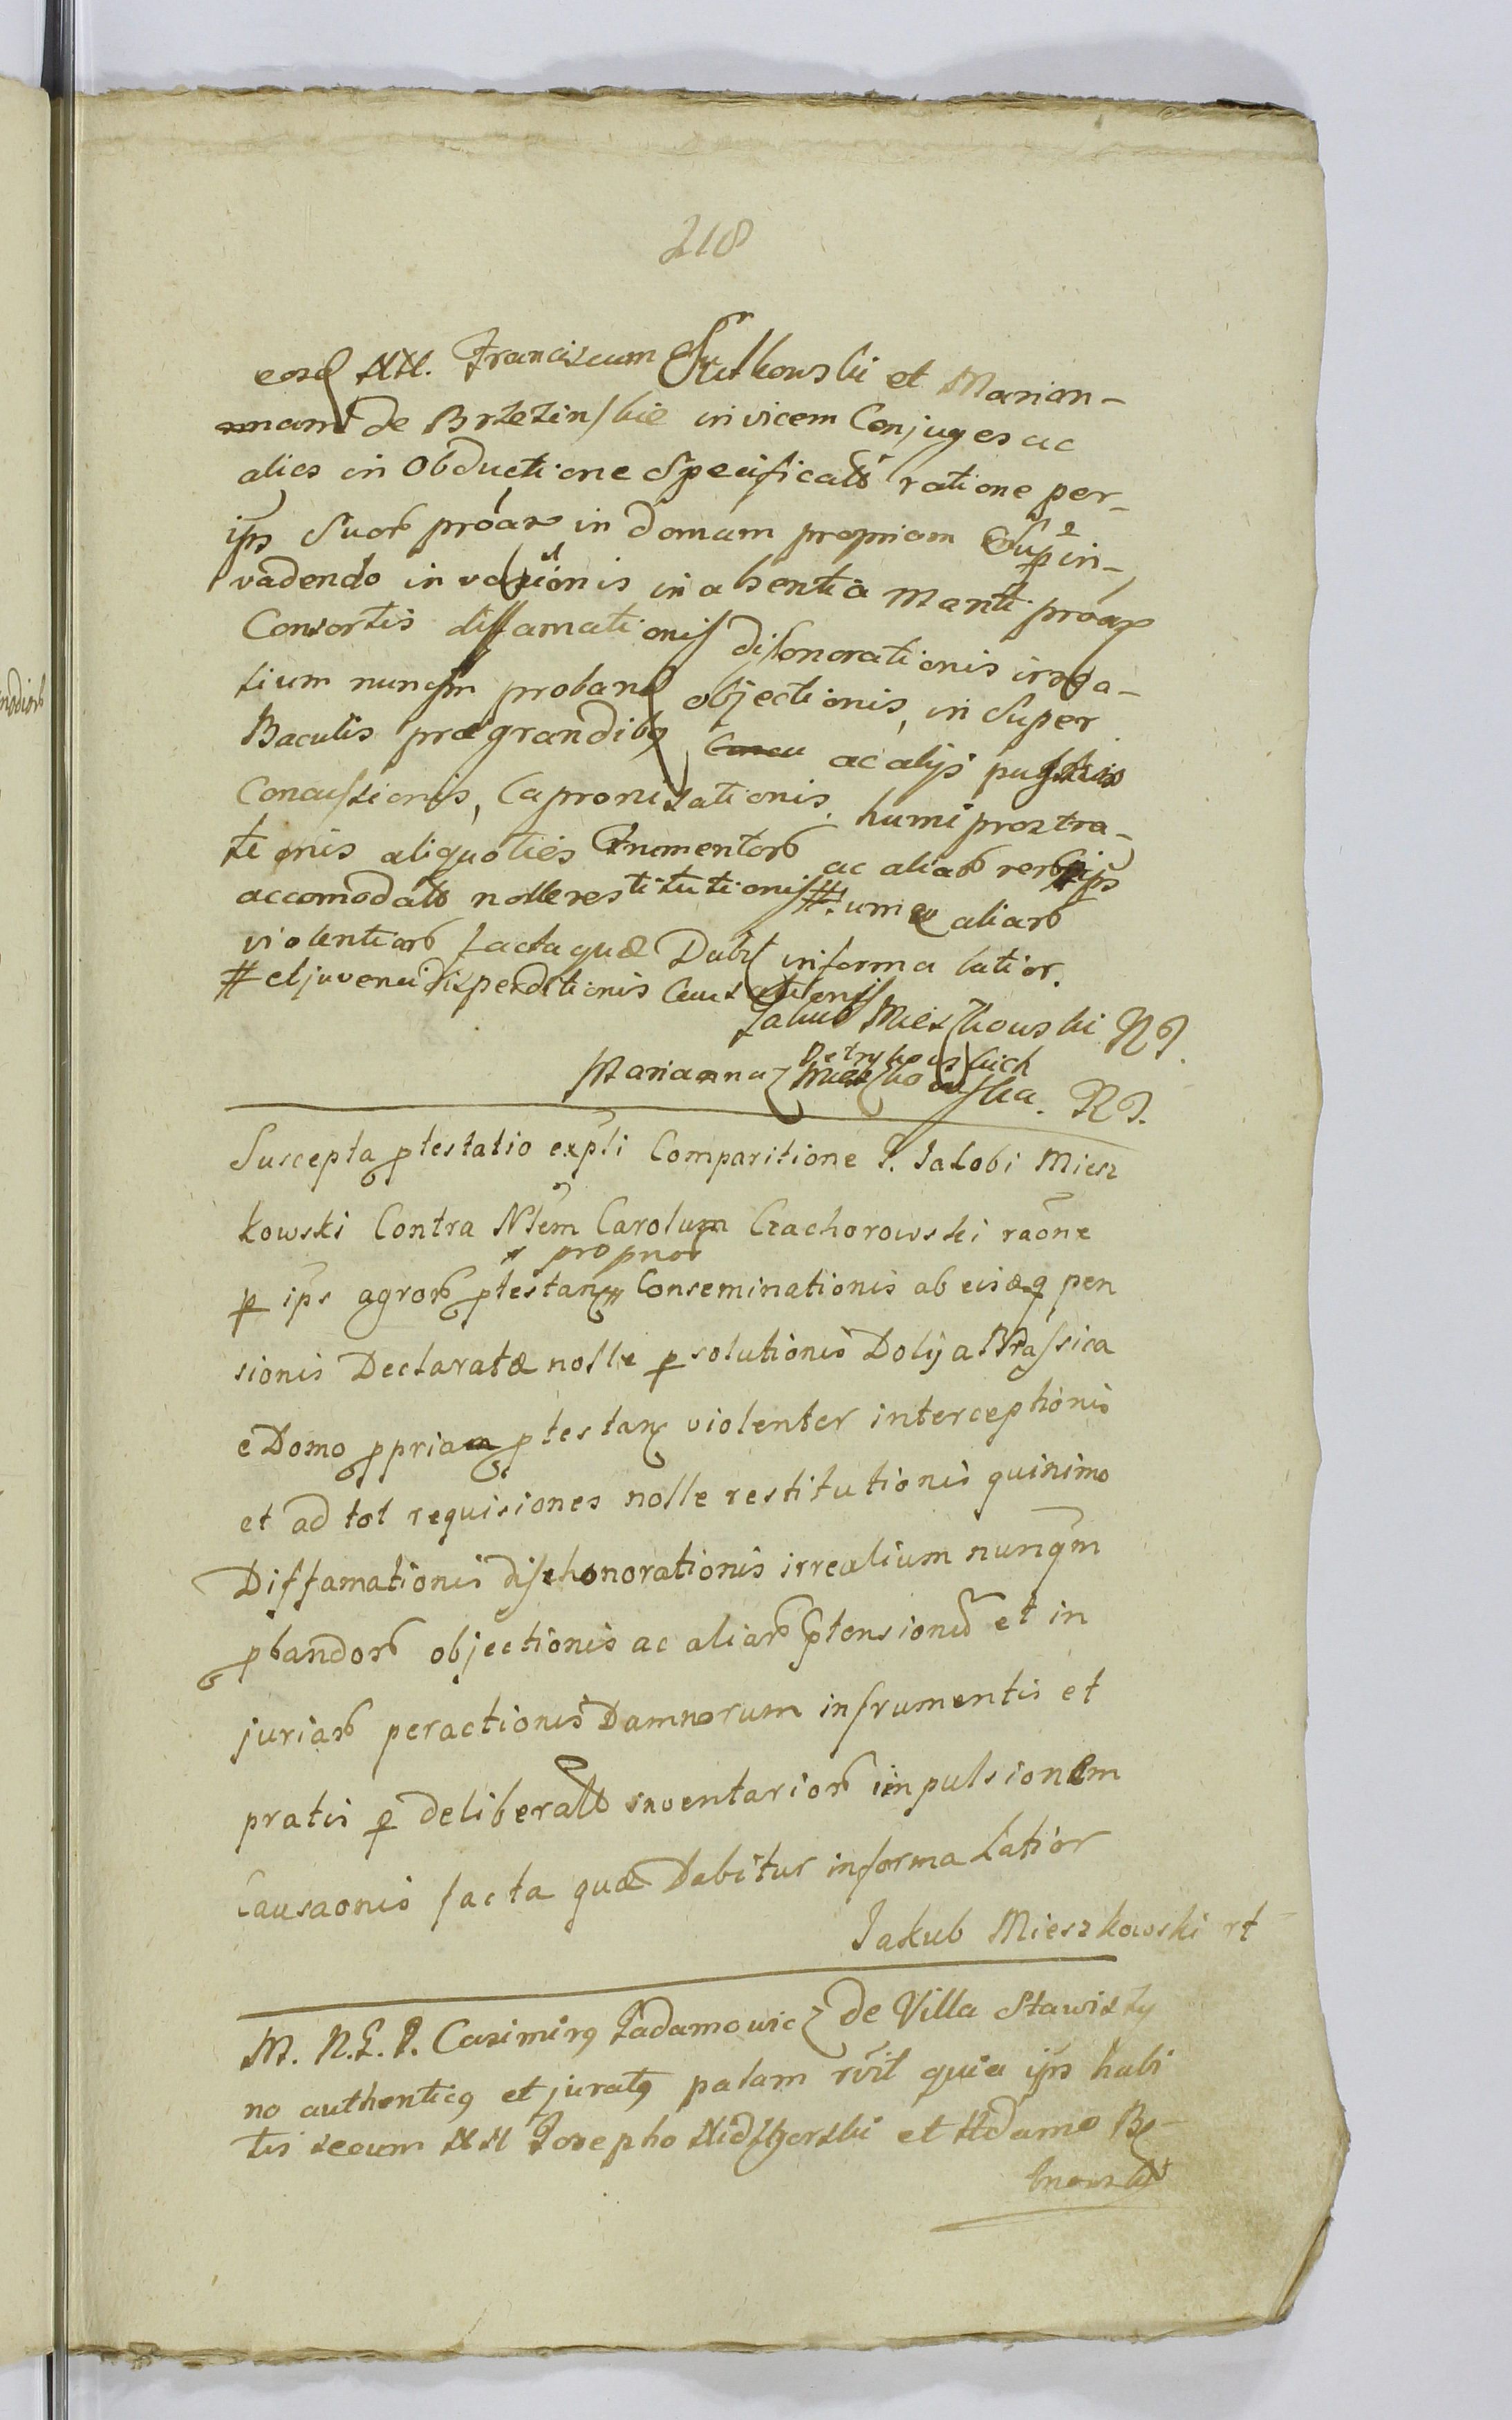 218
eosd NN. Franciscum Sutkowski et Marian-
nam de Brzezinskie invicem Conjuges ac
alios in Obductione Specificatos ratione per
ips Suorb proar in domum propriam Sup in-
vadendo invasionis in absentia Mariti proar
Consortis diffamationis dishonorationis irrea-
lium nunqm proband objectionis, in Super
Baculis prægrandibq ac alijs pugnis
Concussionis, Capronisationis, humi prostra-
tionis aliquoties frumentorb ac aliarb rerb ips
accomodatt nolle restitutionis # umq aliarb
violentiarb facta quæ Dabit in forma latior.
# et juvenci disperditionis Causationis
Jakub Mieszkowski RT.
Marianna z Petrykowskich
Mieszkowska. RT.
Suscepta ptestatio expti Comparitione P. Jakobi Miesz
kowski Contra Nlem Carolum Czachorowski raone
propriorb
p ips agrorb ptestan Conseminationis ab eisdq pen
sionis Declaratæ nolle psolutionis Dolij a Brassica
e Domo ppria ptestan violenter interceptionis
et ad tot requisiones nolle restitutionis quinimo
Diffamationis dishonorationis irrealium nunqm
pbandorb objectionis ac aliarb ptensionu et in
juriarb peractionis Damnorum in frumentis et
pratis p deliberatt inventariorb impulsionem
Causaonis facta quæ Dabitur in forma Latior
Jakub Mieszkowski rt
M. N.E.P. Casimirq Jadamowicz de Villa Stawisky
no authenticq et juratq palam rvit quia ips habi
tis secum NN Josepho et Adamo Be-